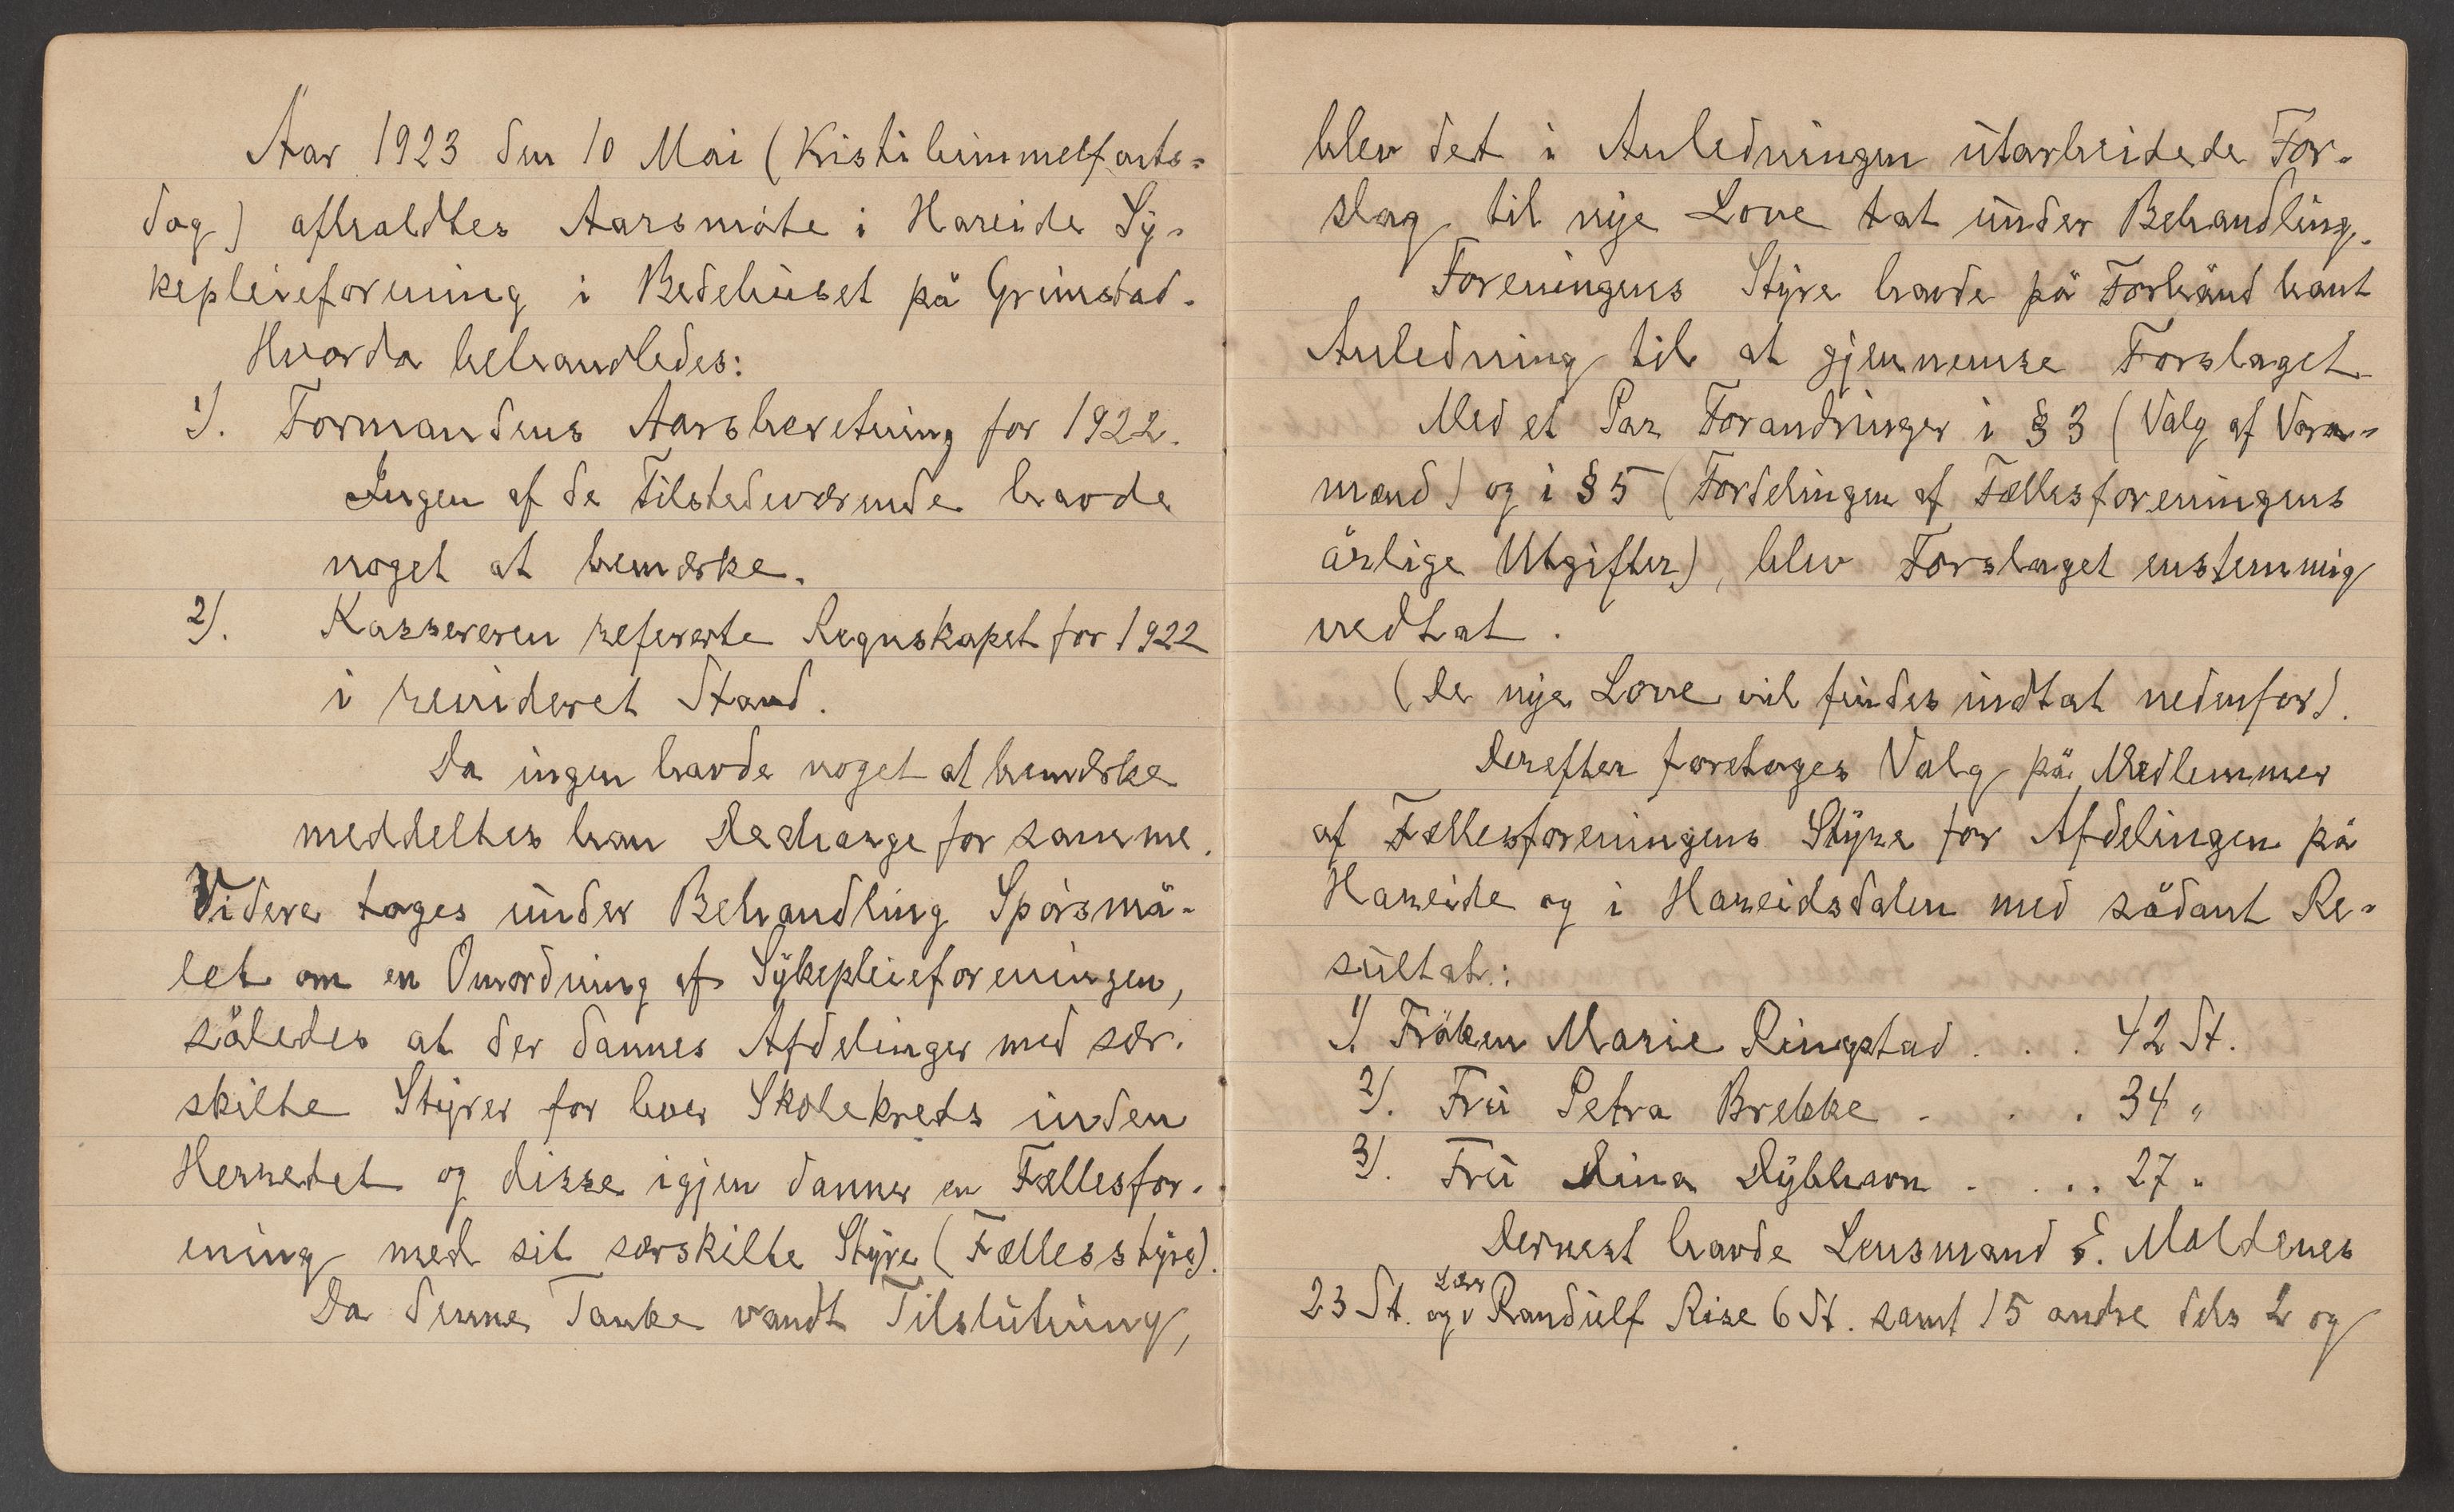 Aar 1923 den 10 Mai (Kristi himmelfarts-
dag) afholdtes Aarsmöte i Hareide Sy-
kepleieforening i Bedehuset på Grimstad.
Hvorda behandledes:
1). Formandens Aarsberetning for 1922.
Ingen af de Tilstedeværende havde
noget at bemærke.
2). Kassereren refererte Regnskapet for 1922
i revideret Stand.
Da ingen havde noget at bemærke
meddeltes han Decharge for samme.
Videre toges under Behandling Spörsmå-
let om en Omordning af Sykepleieforeningen,
således at der dannes Afdelinger med sær-
skilte Styrer for hver Skolekreds inden
Herredet og disse igjen danner en Fællesfor-
ening med sit særskilte Styre (Fællesstyre).
Da denne Tanke vandt Tilslutning,
blev det i Anledningen utarbeidede For-
slag til nye Love tat under Behandling.
Foreningens Styre havde på Forhånd havt
Anledning til at gjennemse Forslaget.
Med et Par Forandringer i § 3 (Valg af Vara-
mænd) og i § 5 (Fordelingen af Fællesforeningens
årlige Utgifter), blev Forslaget enstemmig
vedtat.
(De nye Love vil findes indtat nedenfor).
Derefter foretoges Valg på Medlemmer
af Fællesforeningens Styre for Afdelingen på
Hareide og i Hareidsdalen med sådant Re-
sultat:
1). Fröken Marie Ringstad . . . 42 St.
2). Fru Petra Brekke . . . 34 "
3). Fru Dina Dybhavn . . . . 27 "
Dernest havde Lensmand E. Moldenes
23 St. og Lærer Randulf Rise 6 St. samt 15 andre dels 2 og